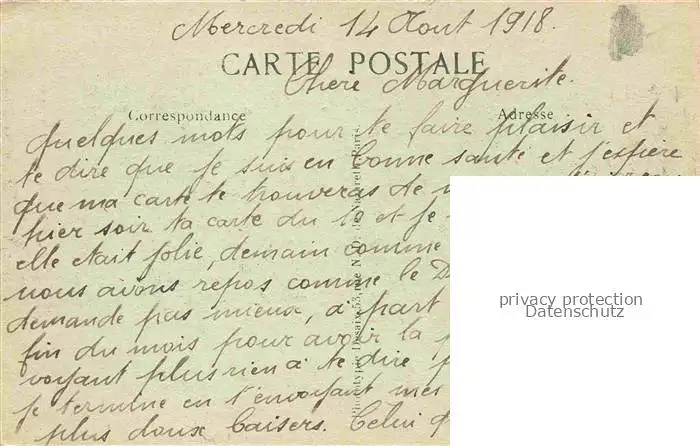 Mercredi 14 Aout 1918.
CARTE POSTALE
Chere Marguerite.
Correspondance
Adresse
Quelques mots pour te faire plaisir et
te dire que je suis en bonne santé et j'espère
que ma carte te trouveras de
hier soir ta carte du 10 et je
elle était jolie, demain comme
nous avons repos comme le D
demande pas mieux, à part
fin du mois pour avoir la
voyant plus rien à te dire
je termine en t'envoyant mes
plus doux baisers. Celui
Phototypie Desaix 53, rue N.D. de Nazareth Paris
privacy protection
Datenschutz